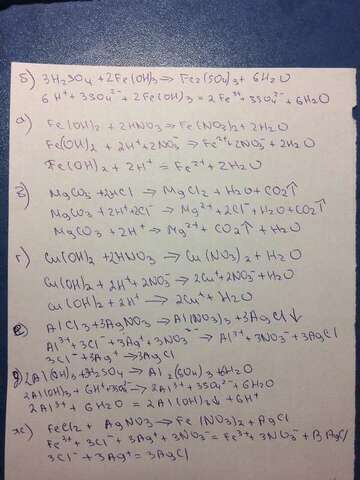 б) 3H₂SO₄ + 2Fe(OH)₃ → Fe₂(SO₄)₃ + 6H₂O
6H⁺ + 3SO₄²⁻ + 2Fe(OH)₃ = 2Fe³⁺ + 3SO₄²⁻ + 6H₂O
а) Fe(OH)₂ + 2HNO₃ → Fe(NO₃)₂ + 2H₂O
Fe(OH)₂ + 2H⁺ + 2NO₃⁻ → Fe²⁺ + 2NO₃⁻ + 2H₂O
Fe(OH)₂ + 2H⁺ = Fe²⁺ + 2H₂O
в) MgCO₃ + 2HCl → MgCl₂ + H₂O + CO₂↑
MgCO₃ + 2H⁺ + 2Cl⁻ → Mg²⁺ + 2Cl⁻ + H₂O + CO₂↑
MgCO₃ + 2H⁺ → Mg²⁺ + CO₂↑ + H₂O
г) Cu(OH)₂ + 2HNO₃ → Cu(NO₃)₂ + H₂O
Cu(OH)₂ + 2H⁺ + 2NO₃⁻ → 2Cu⁺ + 2NO₃⁻ + H₂O
Cu(OH)₂ + 2H⁺ → 2Cu⁺ + H₂O
е) AlCl₃ + 3AgNO₃ → Al(NO₃)₃ + 3AgCl↓
Al³⁺ + 3Cl⁻ + 3Ag⁺ + 3NO₃⁻ → Al³⁺ + 3NO₃⁻ + 3AgCl
3Cl⁻ + 3Ag⁺ → 3AgCl
д) 2Al(OH)₃ + 3H₂SO₄ → Al₂(SO₄)₃ + 6H₂O
2Al(OH)₃ + 6H⁺ + 3SO₄²⁻ → 2Al³⁺ + 3SO₄²⁻ + 6H₂O
2Al³⁺ + 6H₂O = 2Al(OH)₃↓ + 6H⁺
ж) FeCl₂ + AgNO₃ → Fe(NO₃)₂ + AgCl
Fe³⁺ + 3Cl⁻ + 3Ag⁺ + 3NO₃⁻ = Fe³⁺ + 3NO₃⁻ + 3AgCl
3Cl⁻ + 3Ag⁺ = 3AgCl